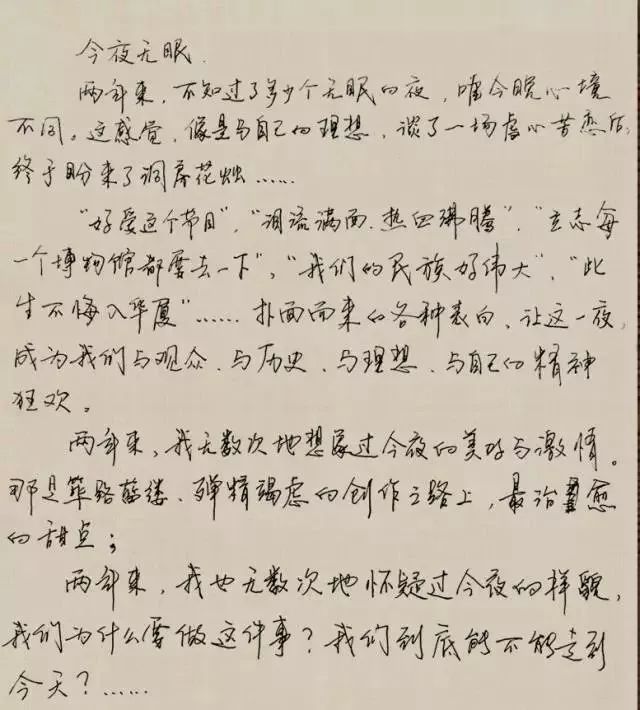 今夜无眠.
两年来,不知过了多少个无眠的夜,唯今晚心境
不同。这感觉,像是与自己的理想,谈了一场虐心苦恋后,
终于盼来了洞房花烛……
"好爱这个节目","泪流满面、热血沸腾","立志每
一个博物馆都要去一下","我们的民族好伟大","此
生不悔入华夏"……扑面而来的各种表白,让这一夜,
成为我们与观众、与历史、与理想、与自己的精神
狂欢。
两年来,我无数次地想象过今夜的美好与激情。
那是筚路蓝缕、殚精竭虑的创作之路上,最治愈
的甜点;
两年来,我也无数次地怀疑过今夜的样貌,
我们为什么要做这件事?我们到底能不能走到
今天?……